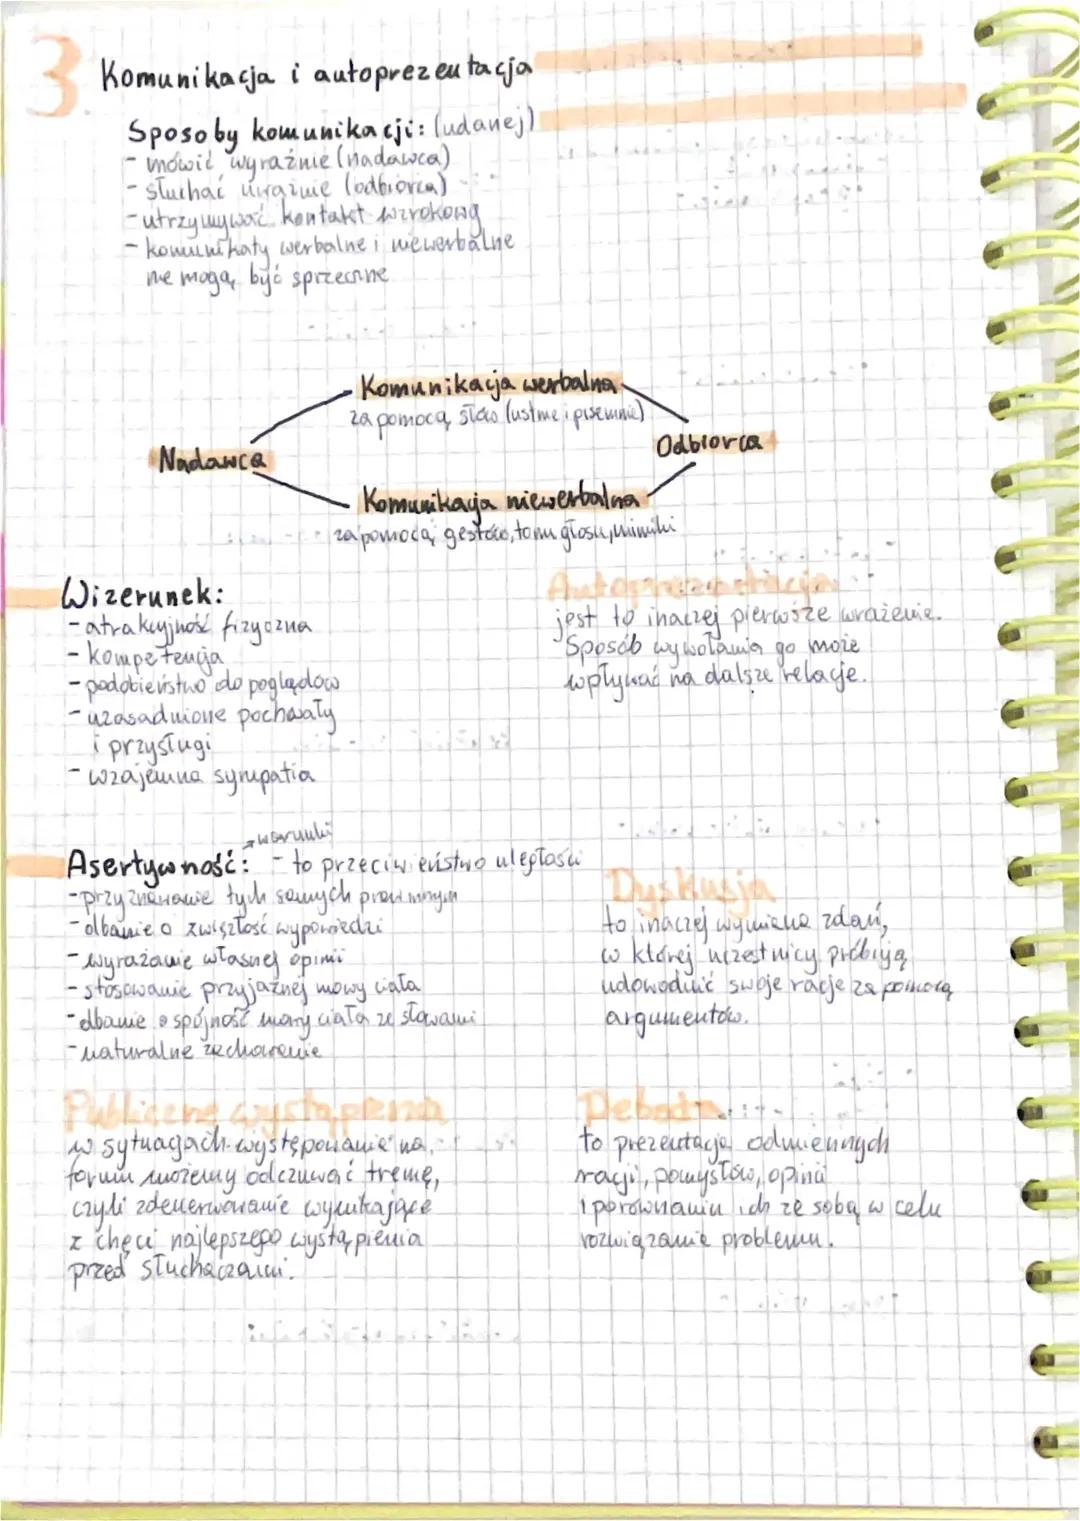 3
Komunikacja i autoprezentacja
Sposoby komunikacji: (udanej)
- mówić wyraźnie (nadawca)
- słuchać uważnie (odbiorca)
- utrzymywać kontakt wzrokowy
- komunikaty werbalne i niewerbalne
nie mogą być sprzeczne
Komunikacja werbalna
za pomocą słów (ustnie i pisemnie)
Nadawca
Odbiorca
Komunikacja niewerbalna
za pomocą gestów, tonu głosu, mimiki
Wizerunek:
- atrakcyjność fizyczna
- kompetencja
- podobieństwo do poglądów
- uzasadnione pochwały
i przysługi
- wzajemna sympatia
Autoprezentacja
jest to inaczej pierwsze wrażenie.
Sposób wywołania go może
wpływać na dalsze relacje.
warunki
Asertywność: - to przeciwieństwo uległości
- przyznawanie tych samych praw innym
- dbanie o zwięzłość wypowiedzi
- wyrażanie własnej opinii
- stosowanie przyjaznej mowy ciała
- dbanie o spójność mowy ciała ze słowami
- naturalne zachowanie
Dyskusja
to inaczej wymiana zdań,
w której uczestnicy próbują
udowodnić swoje racje za pomocą
argumentów.
Publiczne wystąpienia
w sytuacjach występowania na
forum możemy odczuwać tremę,
czyli zdenerwowanie wynikające
z chęci najlepszego wystąpienia
przed słuchaczami.
Debata
to prezentacja odmiennych
racji, pomysłów, opinii
i porównaniu ich ze sobą w celu
rozwiązania problemu.